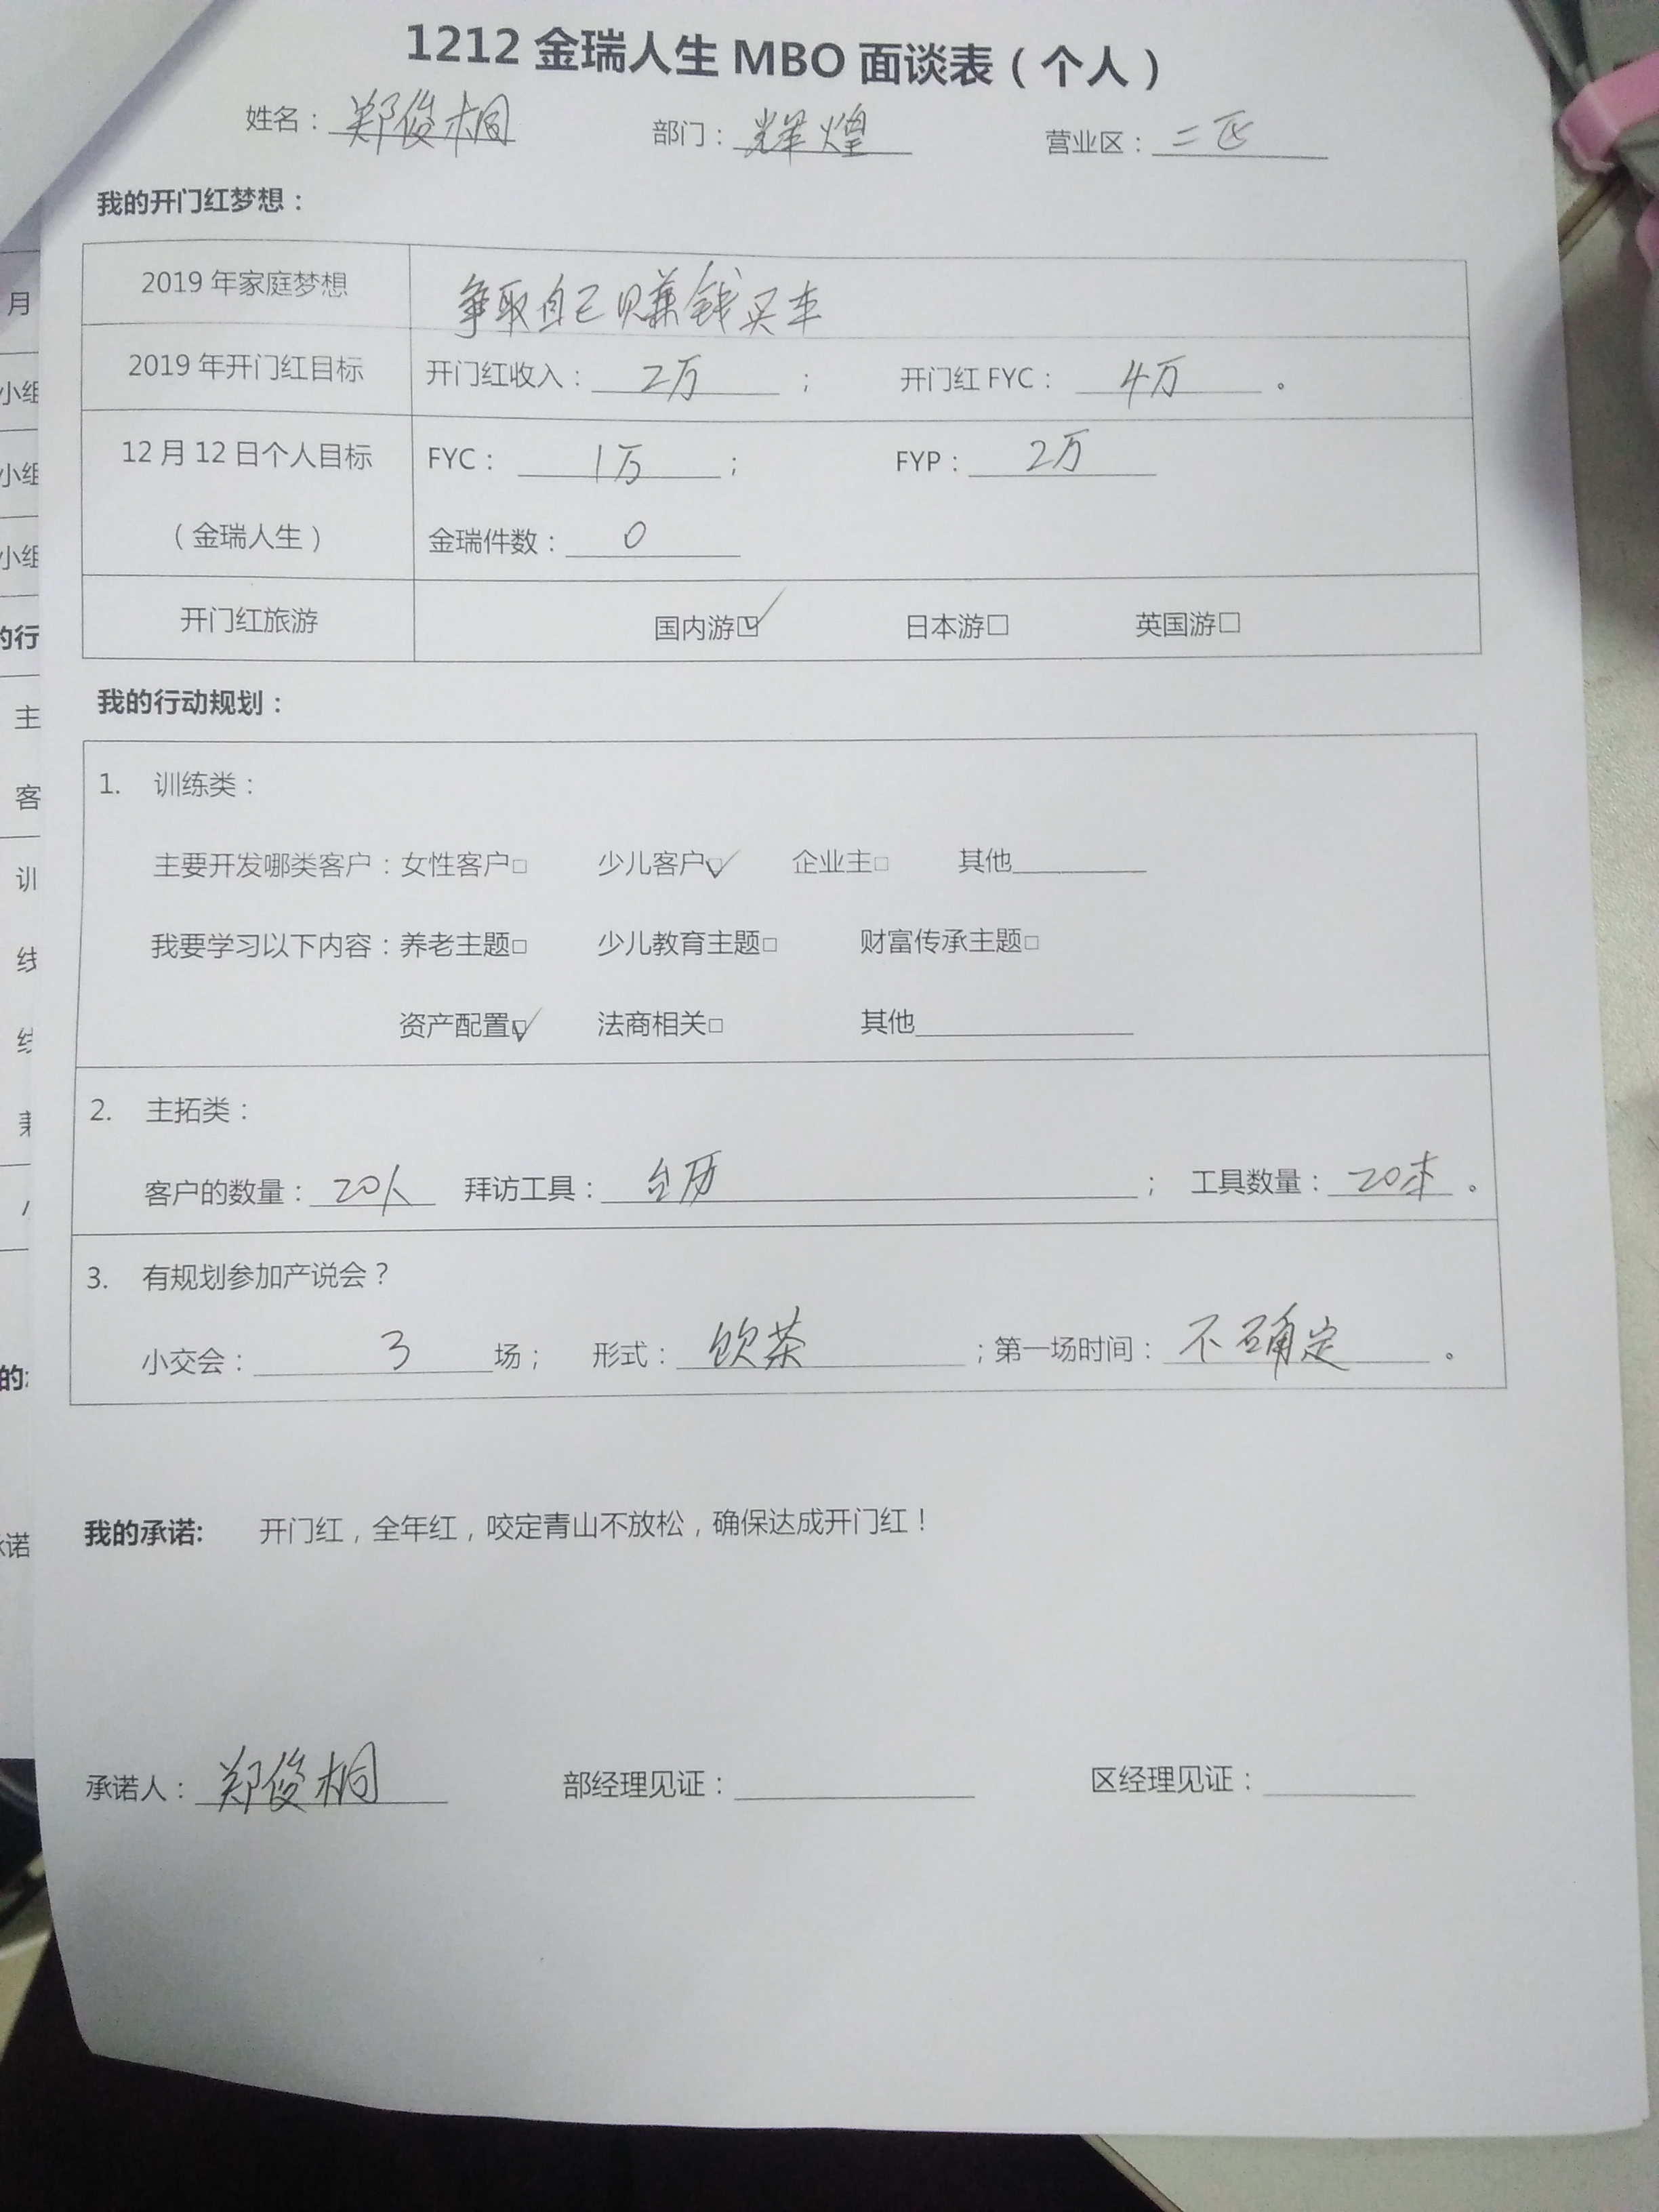 1212 金瑞人生 MBO 面谈表（个人）
姓名：郑俊桐 部门：辉煌 营业区：二区
我的开门红梦想：
2019 年家庭梦想 争取自己赚钱买车
2019 年开门红目标 开门红收入：2万； 开门红 FYC：4万。
12 月 12 日个人目标 FYC：1万； FYP：2万
（金瑞人生） 金瑞件数：0
开门红旅游 国内游☑ 日本游□ 英国游□
我的行动规划：
1. 训练类：
主要开发哪类客户：女性客户□ 少儿客户☑ 企业主□ 其他
我要学习以下内容：养老主题□ 少儿教育主题□ 财富传承主题□
资产配置☑ 法商相关□ 其他
2. 主拓类：
客户的数量：20人 拜访工具：台历； 工具数量：20本。
3. 有规划参加产说会？
小交会：3场； 形式：饮茶；第一场时间：不确定。
我的承诺: 开门红，全年红，咬定青山不放松，确保达成开门红！
承诺人：郑俊桐 部经理见证： 区经理见证：
月
小组
小组
小组
的行
主
客
训
线
的
承诺